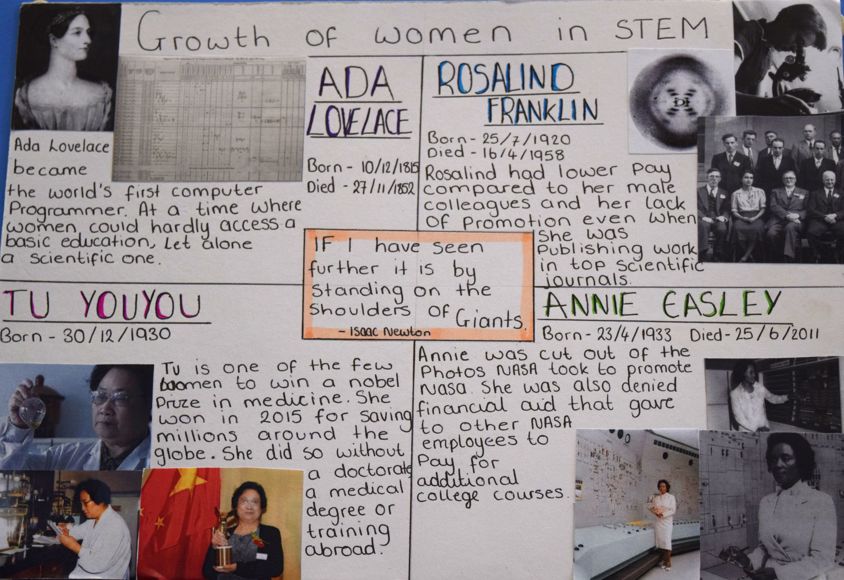 Growth of women in STEM
Ada Lovelace
became
the world's first computer
Programmer. At a time where
women could hardly access a
basic education, Let alone
a scientific one.
ADA
LOVELACE
Born - 10/12/1815
Died - 27/11/1852
ROSALIND
FRANKLIN
Born - 25/7/1920
Died - 16/4/1958
Rosalind had lower Pay
compared to her male
colleagues and her lack
OF Promotion even when
she was
Publishing work
in top Scientific
journals.
IF I have seen
further it is by
Standing on the
Shoulders of Giants.
- Isaac Newton
TU YOUYOU
Born - 30/12/1930
Tu is one of the few
women to win a nobel
Prize in medicine. She
won in 2015 for Saving
millions around the
globe. She did so without
a doctorate
a medical
degree or
training
abroad.
ANNIE EASLEY
Born - 23/4/1933 Died - 25/6/2011
Annie was cut out of the
Photos NASA took to promote
Nasa. She was also denied
financial aid that gave
to other NASA
employees to
Pay for
additional
college courses.